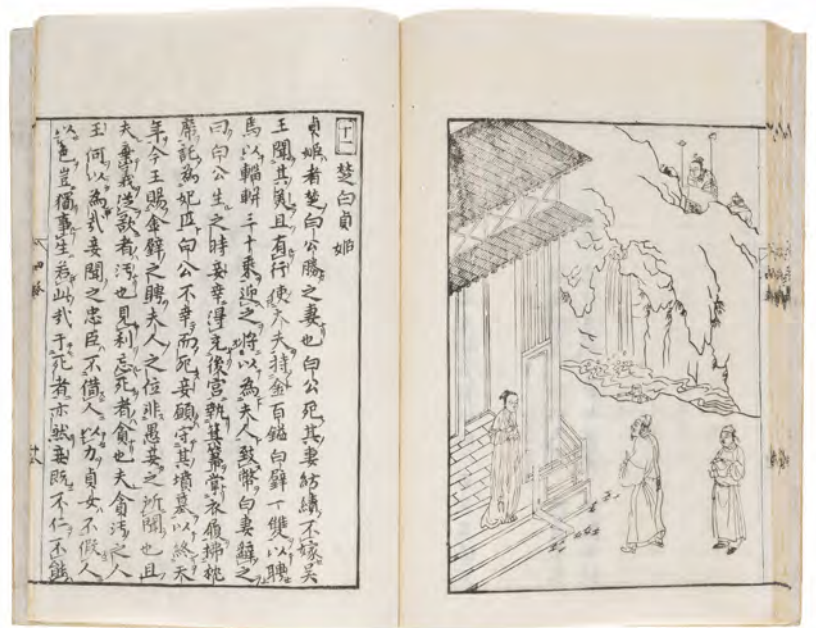 十一 楚白貞姬
貞姬者楚白公勝之妻也白公死其妻紡績不嫁吳
王聞其美且有行使大夫持金百鎰白璧一雙以聘
焉以輜軿三十乘迎之將以為夫人致幣白妻辭之
曰白公生之時妾幸得充後宮執箕箒掌衣履拂枕
席託為妃匹白公不幸而死妾願守其墳墓以終天
年今王賜金璧之聘夫人之位非愚妾之所聞也且
夫棄義從欲者汚也見利忘死者貪也夫貪汚之人
王何以為哉妾聞之忠臣不借人以力貞女不假人
以色豈獨事生若此哉于死者亦然妾既不仁不能